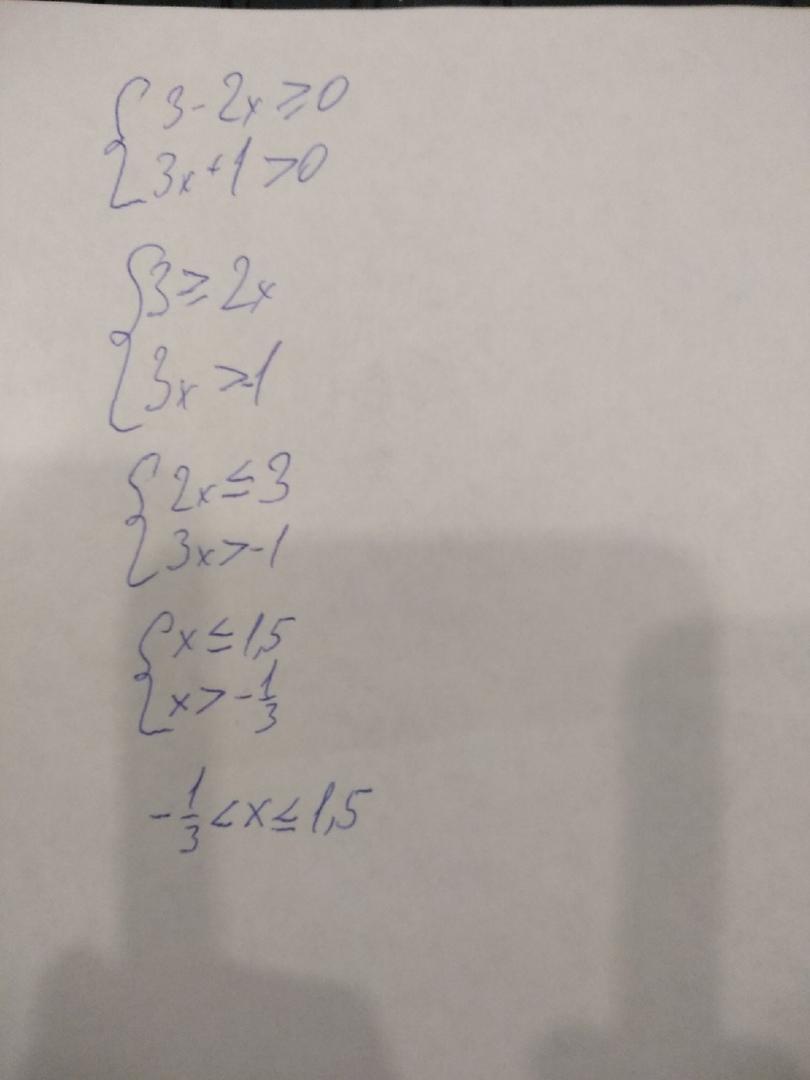 3-2x≥0
3x+1>0
3≥2x
3x>-1
2x≤3
3x>-1
x≤1,5
x>-1/3
-1/3<x≤1,5